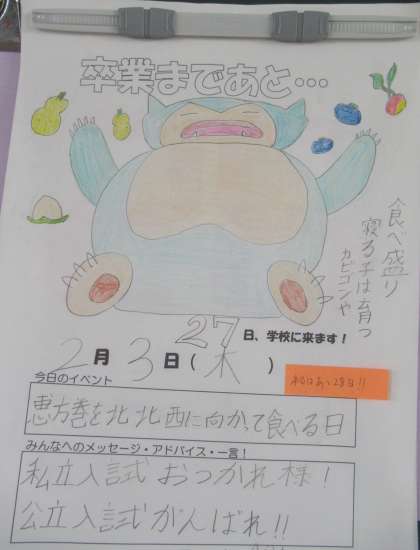 卒業まであと…
食べ盛り
寝る子は育つ
カビゴンや
27日、学校に来ます!
2月3日(木)
今日のイベント
恵方巻を北北西に向かって食べる日
みんなへのメッセージ・アドバイス・一言!
私立入試おつかれ様!
公立入試がんばれ!!